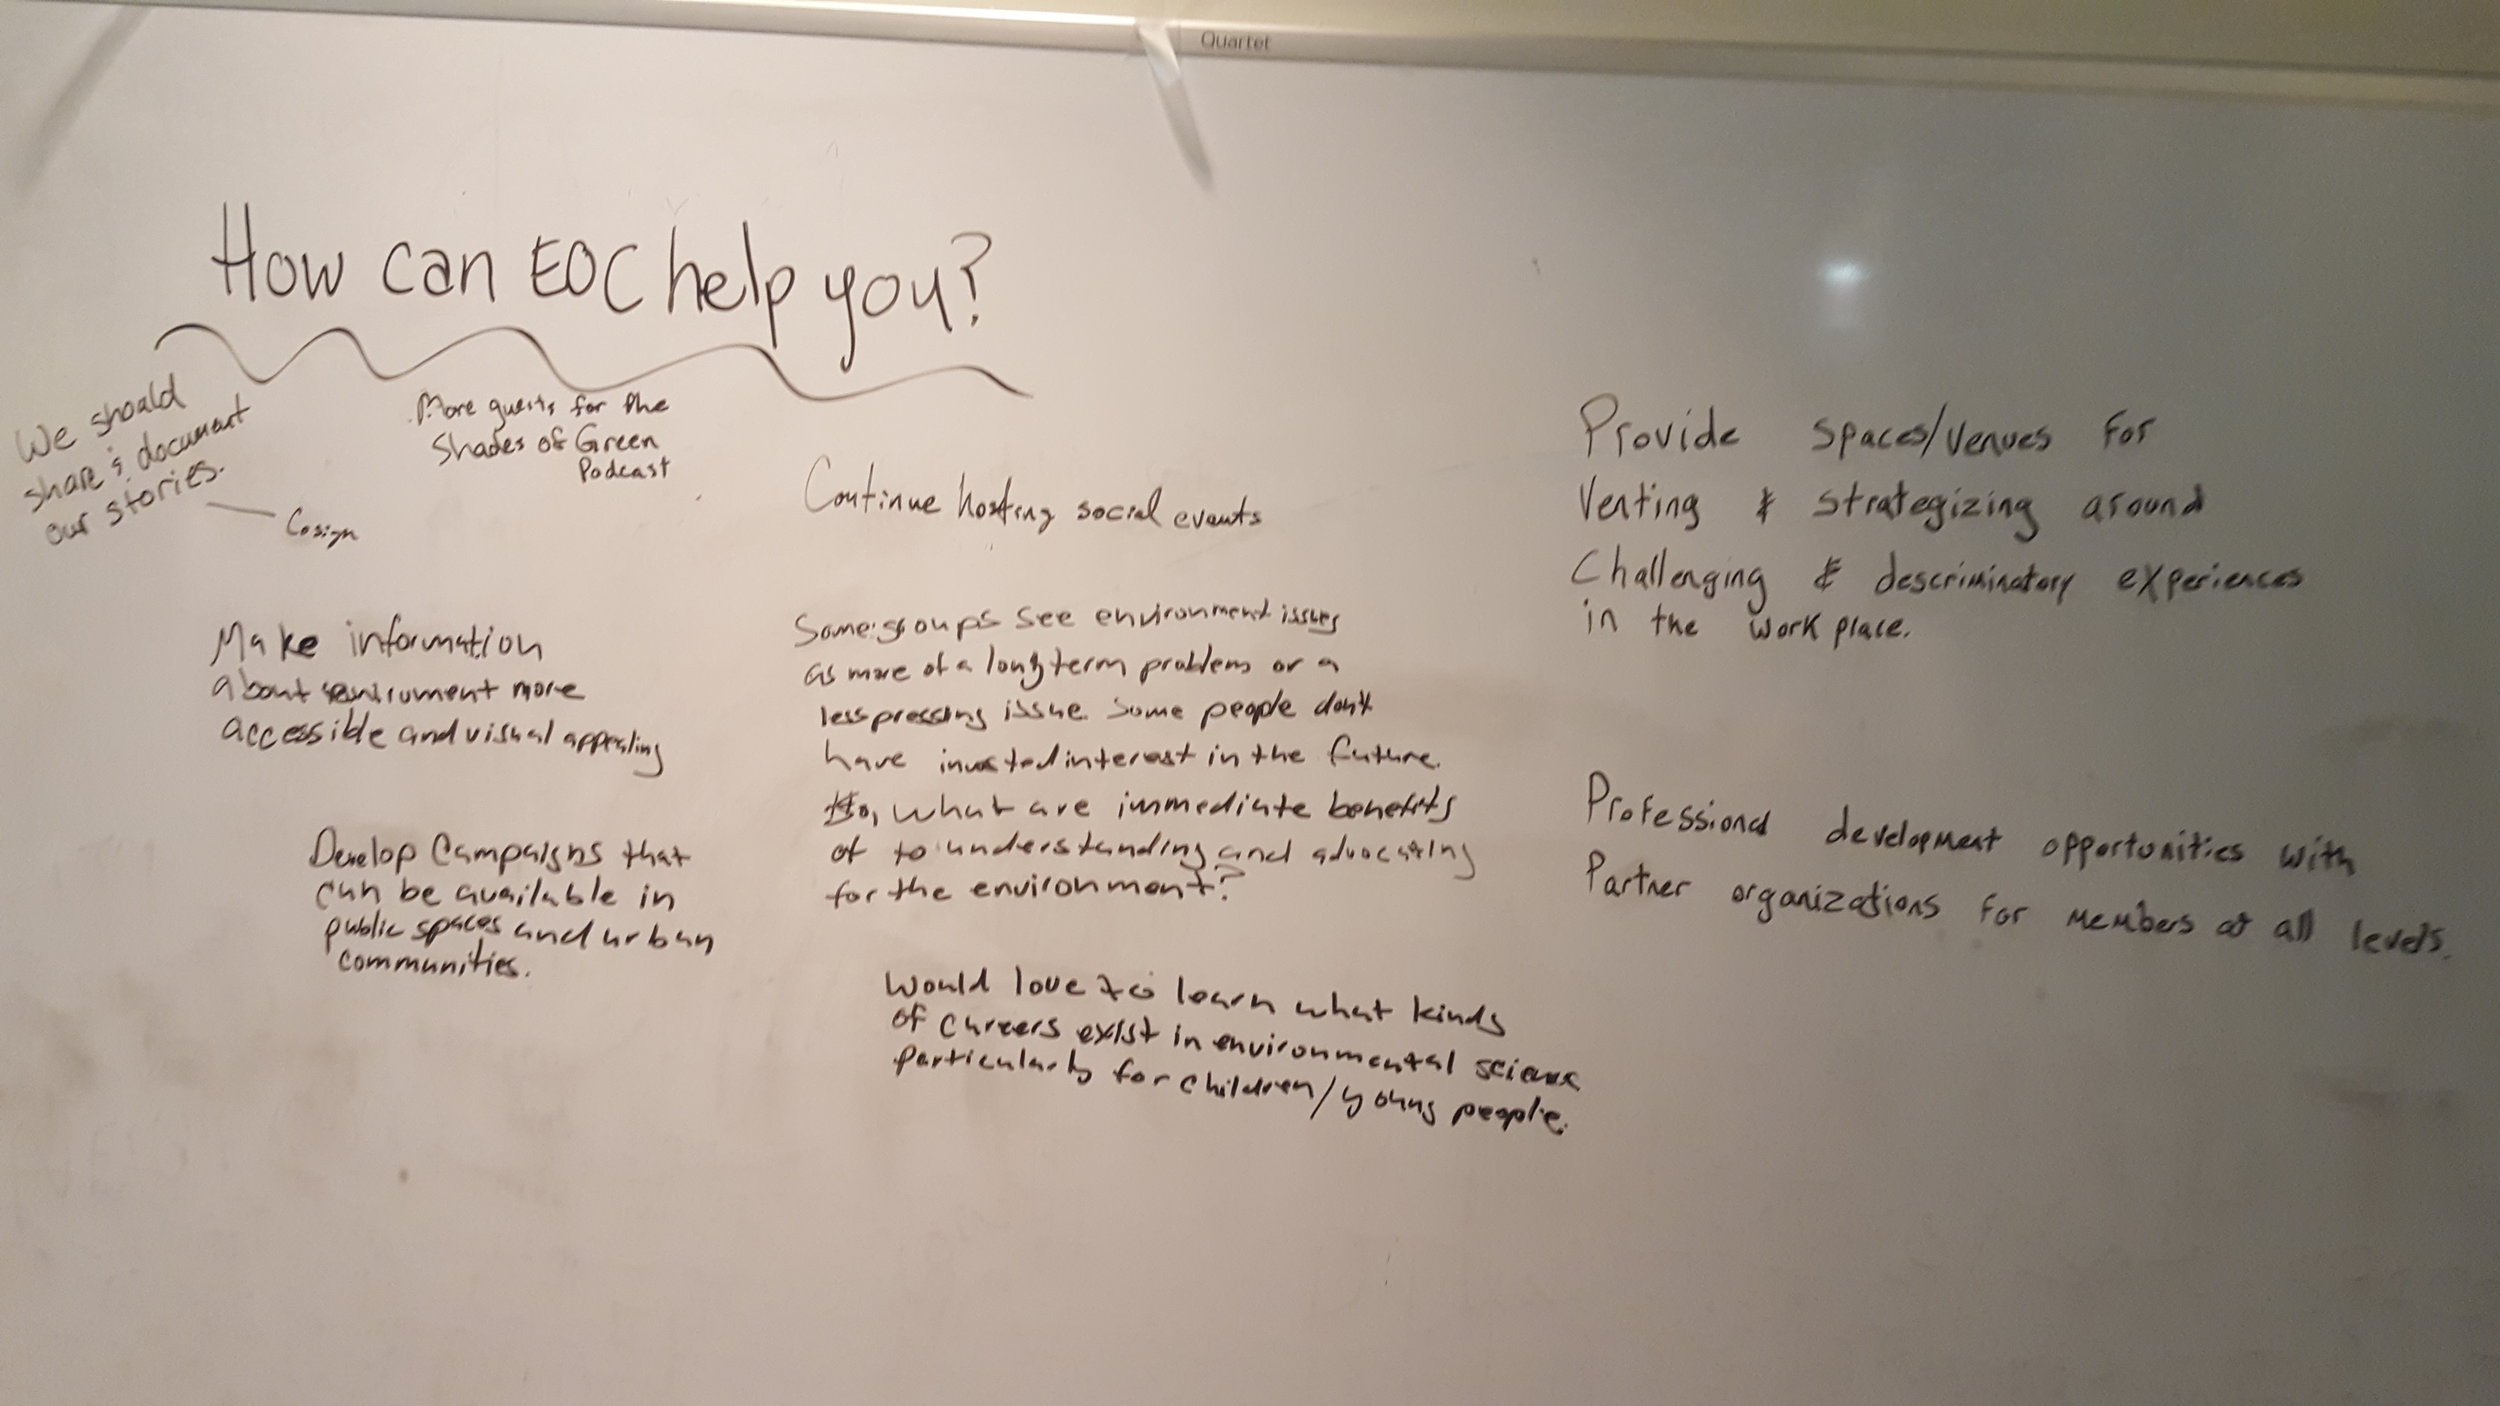 Quartet
How can EOC help you?
We should
share & document
our stories.
Cosign
More guests for the
Shades of Green
Podcast
Make information
about enviroment more
accessible and visual appealing
Develop Campaigns that
can be available in
public spaces and urban
communities.
Continue hosting social events
Some groups see environment issues
as more of a long term problem or a
less pressing issue. Some people don't
have invested interest in the future.
So, what are immediate benefits
of to understanding and advocating
for the environment?
Would love to learn what kinds
of careers exist in environmental science
particularly for children/young people.
Provide Spaces/Venues for
Venting & strategizing around
Challenging & descriminatory experiences
in the work place.
Professional development opportunities with
Partner organizations for members at all levels.